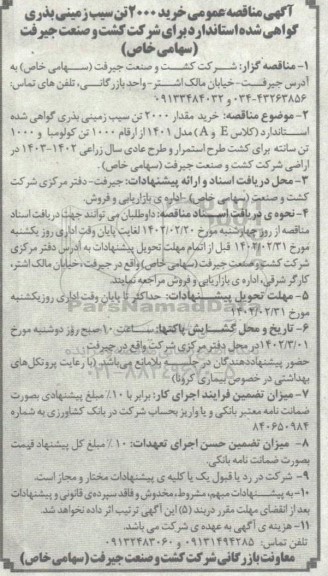 آگهی مناقصه عمومی خرید ۲۰۰۰ تن سیب زمینی بذری
گواهی شده استاندارد برای شرکت کشت و صنعت جیرفت
(سهامی خاص)
۱- مناقصه گزار: شرکت کشت و صنعت جیرفت (سهامی خاص) به
آدرس جیرفت- خیابان مالک اشتر- واحد بازرگانی، تلفن های تماس:
۰۳۴-۴۳۲۶۳۸۵۶ و ۰۹۱۳۳۴۸۴۰۳۲
۲- موضوع مناقصه: خرید مقدار ۲۰۰۰ تن سیب زمینی بذری گواهی شده
استاندارد (کلاس E و A) مدل ۱۴۰۱ از ارقام ۱۰۰۰ تن کولومبا و ۱۰۰۰
تن سانته برای کشت طرح استمرار و طرح عادی سال زراعی ۱۴۰۲-۱۴۰۳ در
اراضی شرکت کشت و صنعت جیرفت (سهامی خاص).
۳- محل دریافت اسناد و ارائه پیشنهادات: جیرفت- دفتر مرکزی شرکت
کشت و صنعت (سهامی خاص) - اداره ی بازاریابی و فروش.
۴- نحوه ی دریافت اسناد مناقصه: داوطلبان می توانند جهت دریافت اسناد
مناقصه از روز چهارشنبه مورخ ۱۴۰۲/۰۲/۲۰ لغایت پایان وقت اداری روز یکشنبه
مورخ ۱۴۰۲/۰۲/۳۱ قبل از اتمام مهلت تحویل پیشنهادات به آدرس دفتر مرکزی
شرکت کشت و صنعت جیرفت (سهامی خاص) واقع در جیرفت، خیابان مالک اشتر،
کارگر شرقی، اداره ی بازاریابی و فروش مراجعه نمایند.
۵- مهلت تحویل پیشنهادات: حداکثر تا پایان وقت اداری روز یکشنبه
مورخ ۱۴۰۲/۰۲/۳۱
۶- تاریخ و محل گشایش پاکتها: ساعت ۱۰ صبح روز دوشنبه مورخ
۱۴۰۲/۳/۰۱ در محل دفتر مرکزی شرکت واقع در جیرفت.
حضور پیشنهاددهندگان در جلسه بلامانع می‌باشد. (با رعایت پروتکل‌های
بهداشتی در خصوص بیماری کرونا)
۷- میزان تضمین فرایند اجرای کار: برابر با ۱۰٪ مبلغ پیشنهادی بصورت
ضمانت نامه معتبر بانکی و یا واریز بحساب شرکت در بانک کشاورزی به شماره
۸۴۰۶۵۰۹۸۴
۸- میزان تضمین حسن اجرای تعهدات: ۱۰٪ مبلغ کل پیشنهاد قیمت
بصورت ضمانت نامه بانکی.
۹- شرکت در رد یا قبول یک یا کلیه ی پیشنهادات مختار و مجاز است.
۱۰- به پیشنهادات مبهم، مشروط، مخدوش و فاقد سپرده‌ی قانونی و پیشنهادات
بعد از انقضای مهلت مقرر در بند (۵) این آگهی ترتیب اثر داده نخواهد شد.
۱۱- هزینه ی آگهی به عهده ی شرکت می باشد.
تلفن تماس: ۰۹۱۳۱۴۹۴۲۸۵ و ۰۹۱۳۲۴۸۳۰۶۰
معاونت بازرگانی شرکت کشت و صنعت جیرفت (سهامی خاص)
ParsNamadData
۰۲۱-۸۸۳۴۹۶۷۰-۵